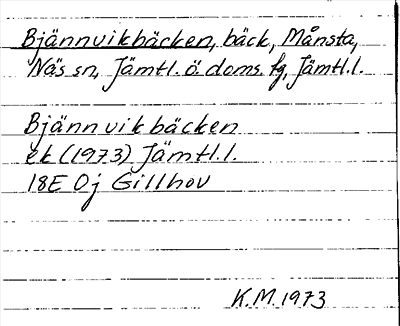 Bjännvikbäcken, bäck, Månsta,
Näs sn, Jämtl. ö. doms. fg, Jämtl. l.
Bjännvikbäcken
ek (1973) Jämtl. l.
18E 0j Gillhov
K.M. 1973